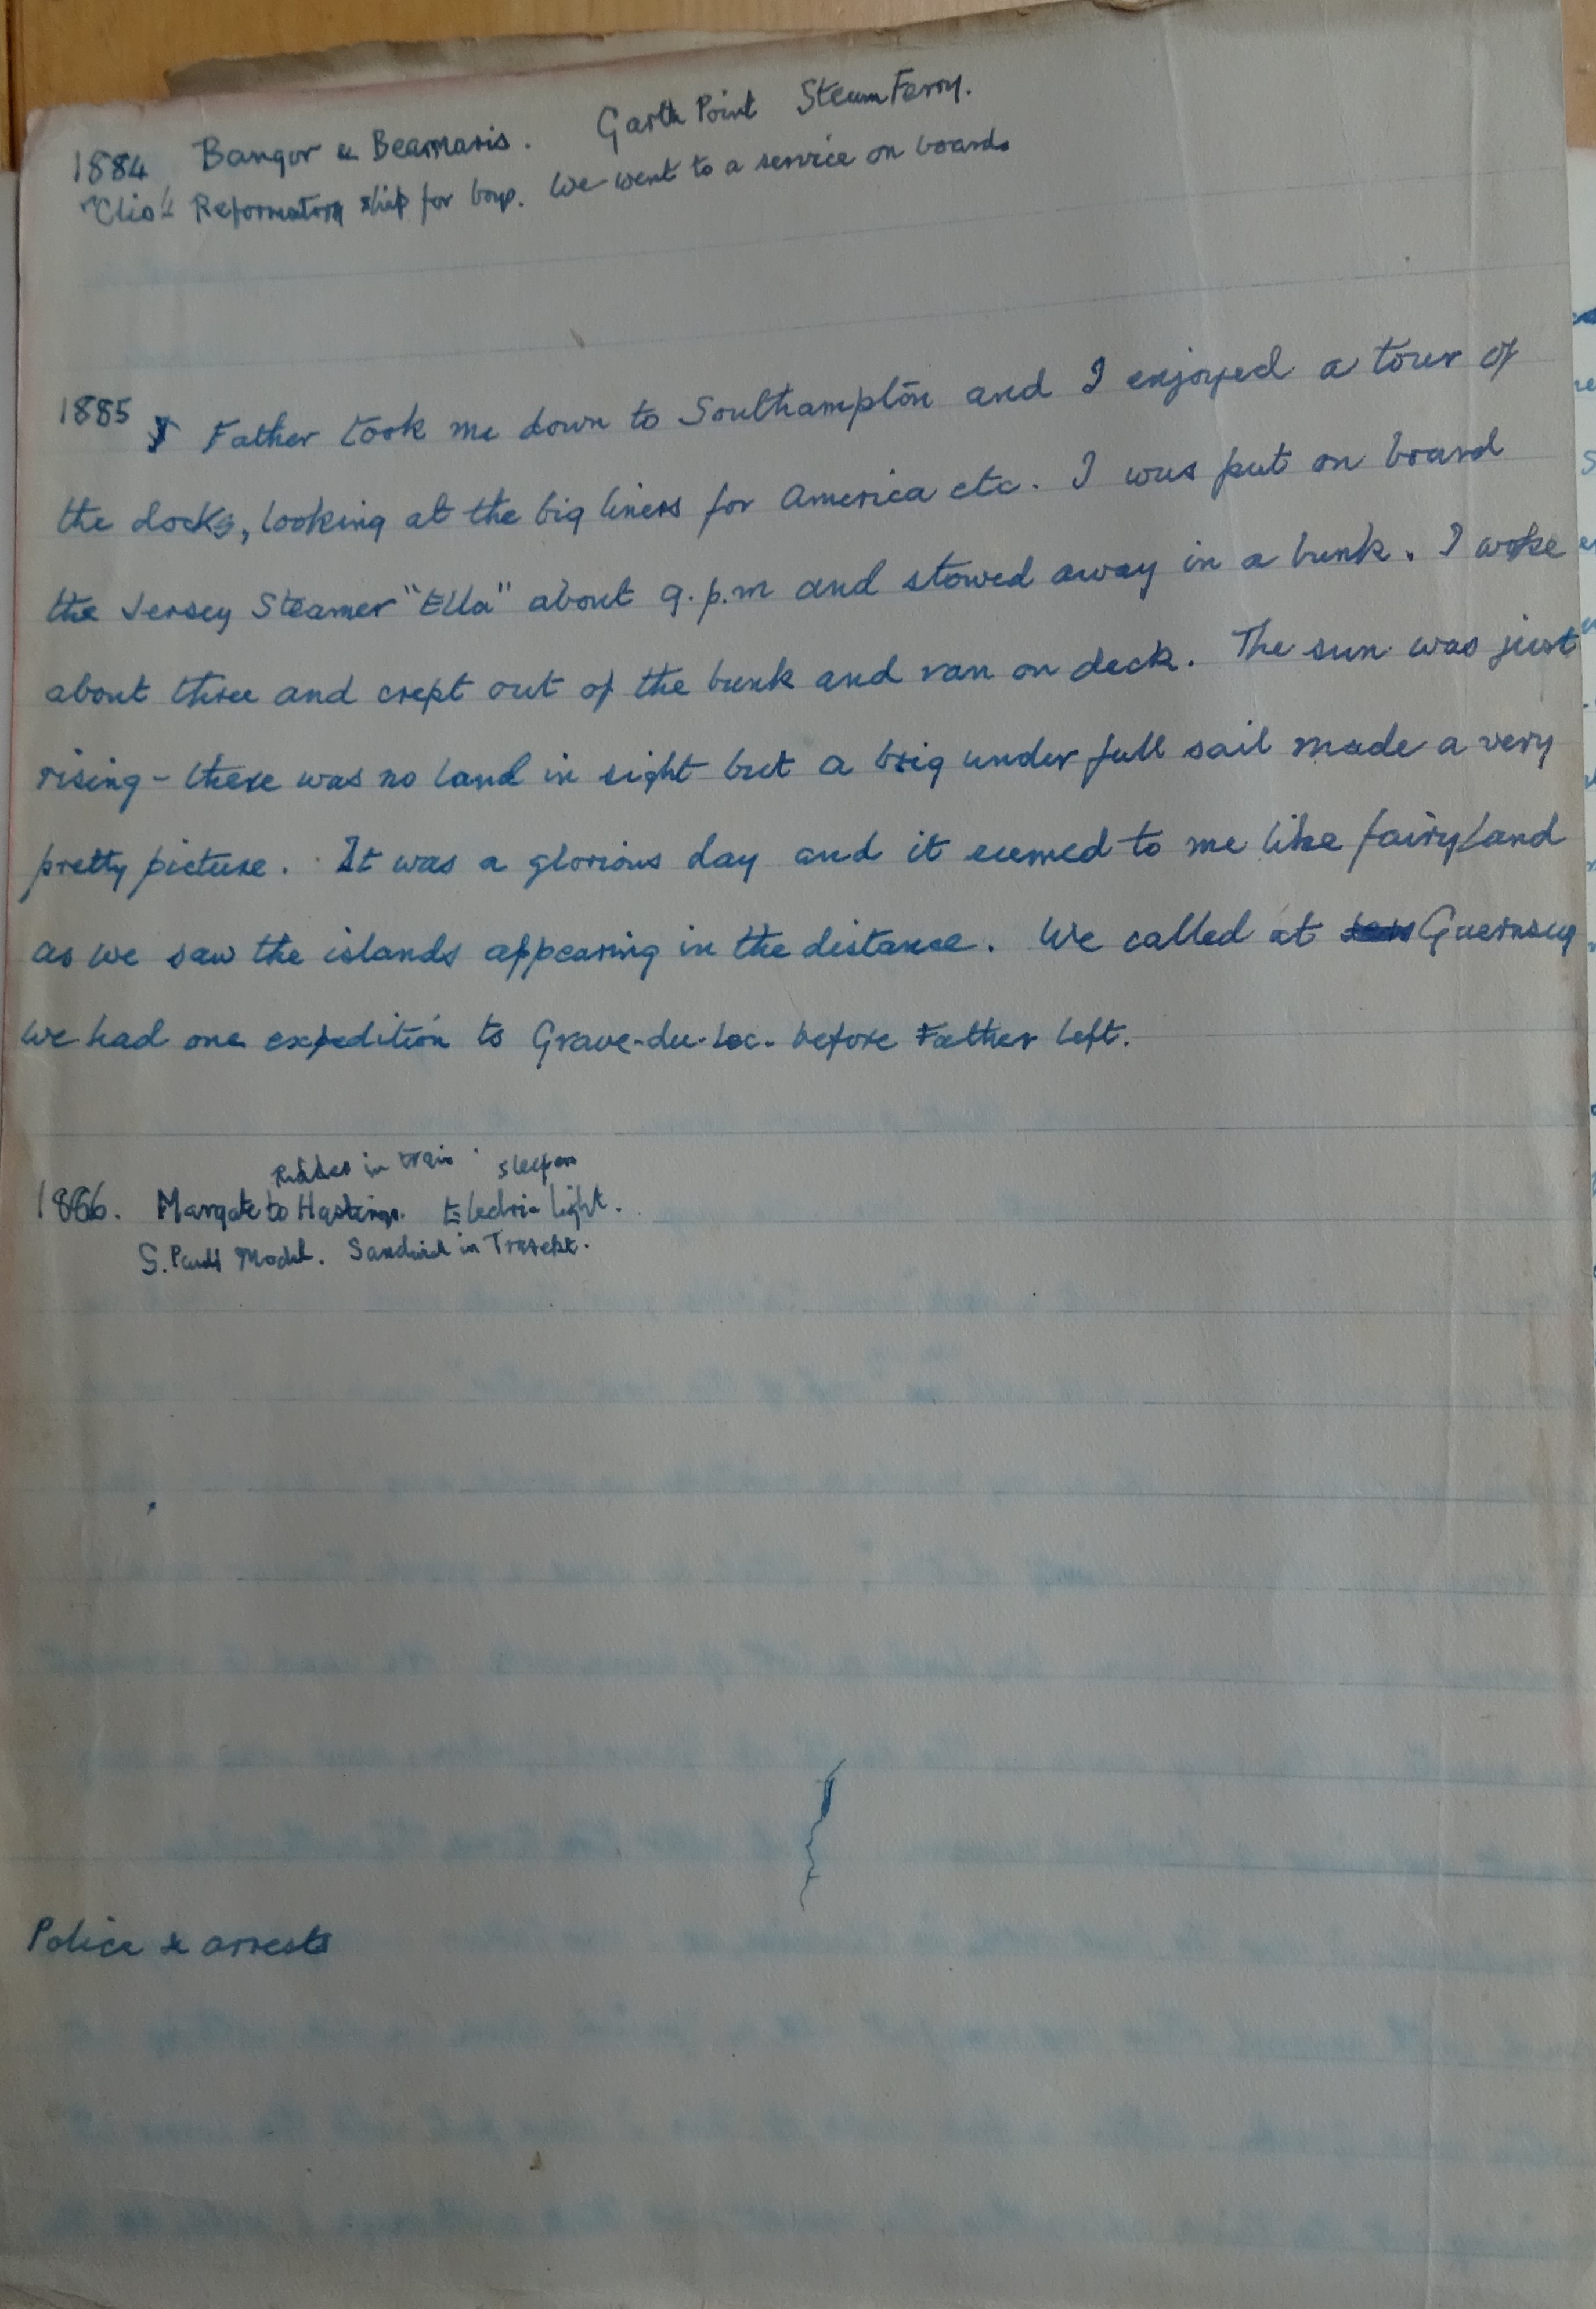 1884 Bangor & Beaumaris. Garth Point Steam Ferry.
"Clio" Reformatory ship for boys. We went to a service on board.
1885 Father took me down to Southampton and I enjoyed a tour of
the docks, looking at the big liners for America etc. I was put on board
the Jersey Steamer "Ella" about 9.p.m and stowed away in a bunk. I woke
about three and crept out of the bunk and ran on deck. The sun was just
rising - there was no land in sight but a brig under full sail made a very
pretty picture. It was a glorious day and it seemed to me like fairyland
as we saw the islands appearing in the distance. We called at Guernsey
we had one expedition to Grave-du-Loc. before Father left.
in train sleepers
1886. Margate to Hastings. Electric light.
S. Pauls Model. Sandwich in
Police & arrests